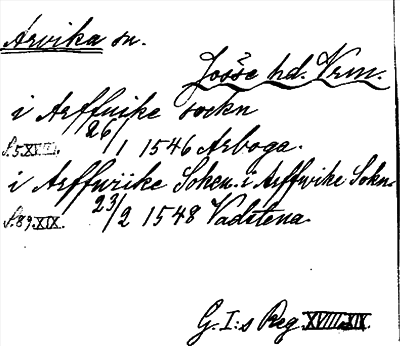 Arvika sn.
Jösse hd. Vrm.
i Arffuike sockn
S.5 XVIII. 26/1 1546 Arboga.
i Arffwiike Soken. i Arffwike Sokn.
S.89. XIX. 23/2 1548 Vadstena.
G. I:s Reg XVIII. XIX.